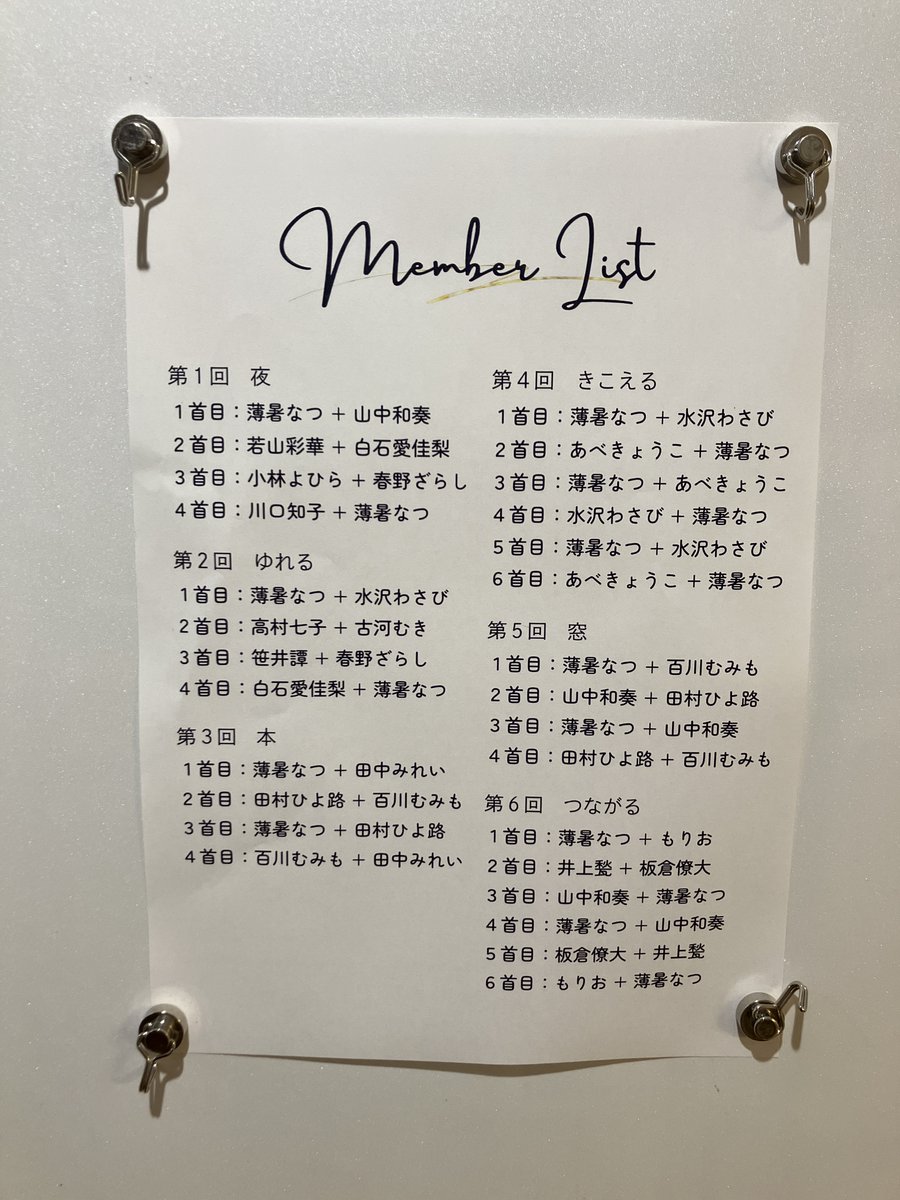 Member List
第1回 夜
1首目：薄暑なつ + 山中和奏
2首目：若山彩華 + 白石愛佳梨
3首目：小林よひら + 春野ざらし
4首目：川口知子 + 薄暑なつ
第2回 ゆれる
1首目：薄暑なつ + 水沢わさび
2首目：高村七子 + 古河むき
3首目：笹井譚 + 春野ざらし
4首目：白石愛佳梨 + 薄暑なつ
第3回 本
1首目：薄暑なつ + 田中みれい
2首目：田村ひよ路 + 百川むみも
3首目：薄暑なつ + 田村ひよ路
4首目：百川むみも + 田中みれい
第4回 きこえる
1首目：薄暑なつ + 水沢わさび
2首目：あべきょうこ + 薄暑なつ
3首目：薄暑なつ + あべきょうこ
4首目：水沢わさび + 薄暑なつ
5首目：薄暑なつ + 水沢わさび
6首目：あべきょうこ + 薄暑なつ
第5回 窓
1首目：薄暑なつ + 百川むみも
2首目：山中和奏 + 田村ひよ路
3首目：薄暑なつ + 山中和奏
4首目：田村ひよ路 + 百川むみも
第6回 つながる
1首目：薄暑なつ + もりお
2首目：井上鵞 + 板倉僚大
3首目：山中和奏 + 薄暑なつ
4首目：薄暑なつ + 山中和奏
5首目：板倉僚大 + 井上
6首目：もりお + 薄暑なつ